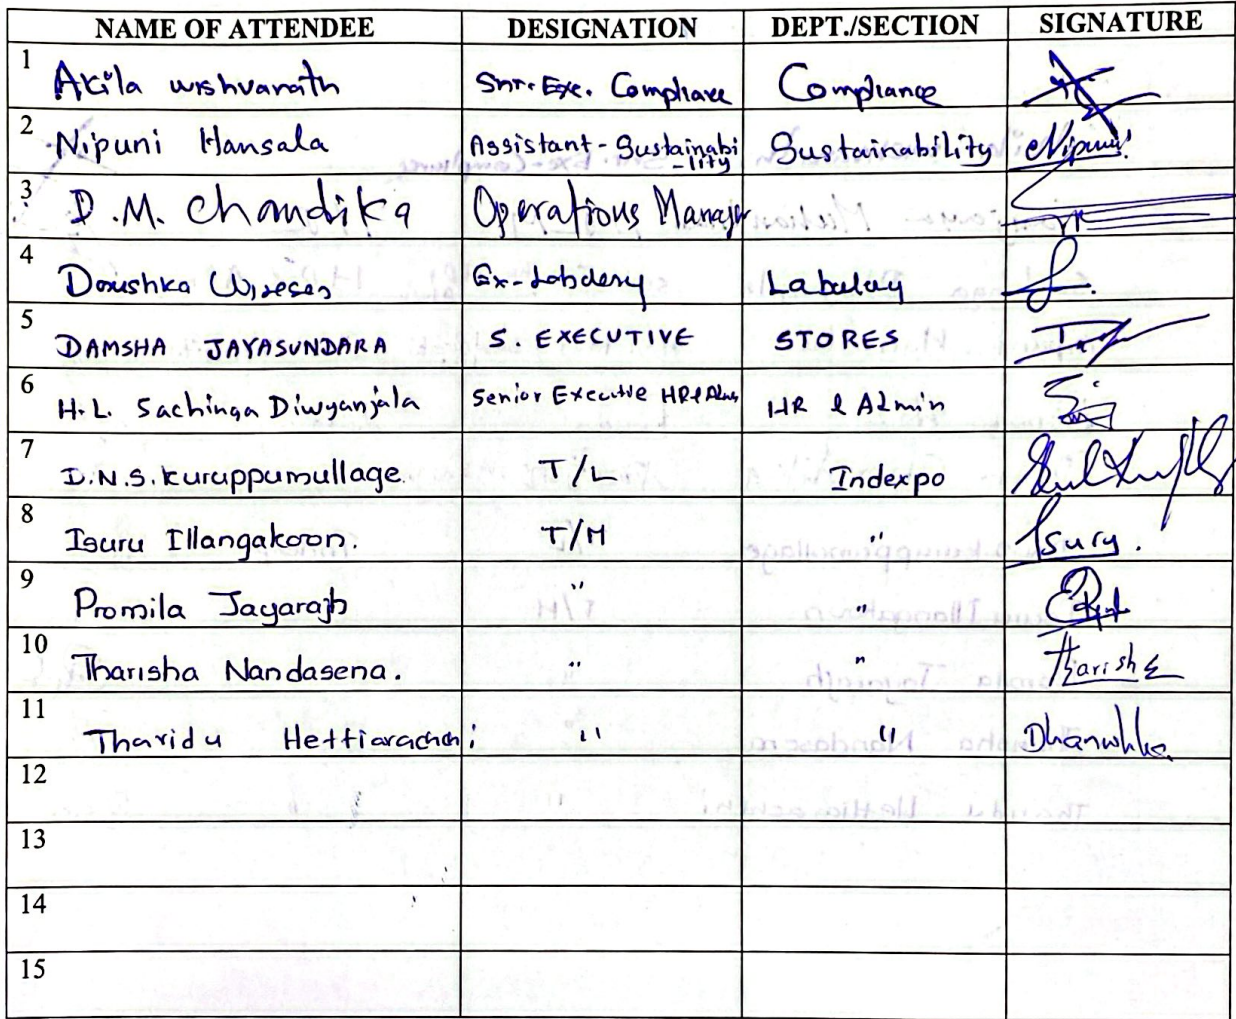 NAME OF ATTENDEE DESIGNATION DEPT./SECTION SIGNATURE
1 Akila wishvanath Snr. Exe. Compliance Compliance
2 Nipuni Hansala Assistant - Sustainabi Sustainability Nipuni
-lity
3 D.M. Chandika Operations Manager
4 Ex- Labulay
5 DAMSHA JAYASUNDARA S. EXECUTIVE STORES
6 H.L. Sachinga Diwyanjala Senior Executive HR & HR & Admin
7 D.N.S. Kuruppumullage T/L Indexpo
8 Isuru Illangakoon. T/M " Isuru.
9 Promila Jayarajh " "
10 Tharisha Nandasena. " " Tharisha
11 Tharidu Hettiarachchi " "
12
13
14
15